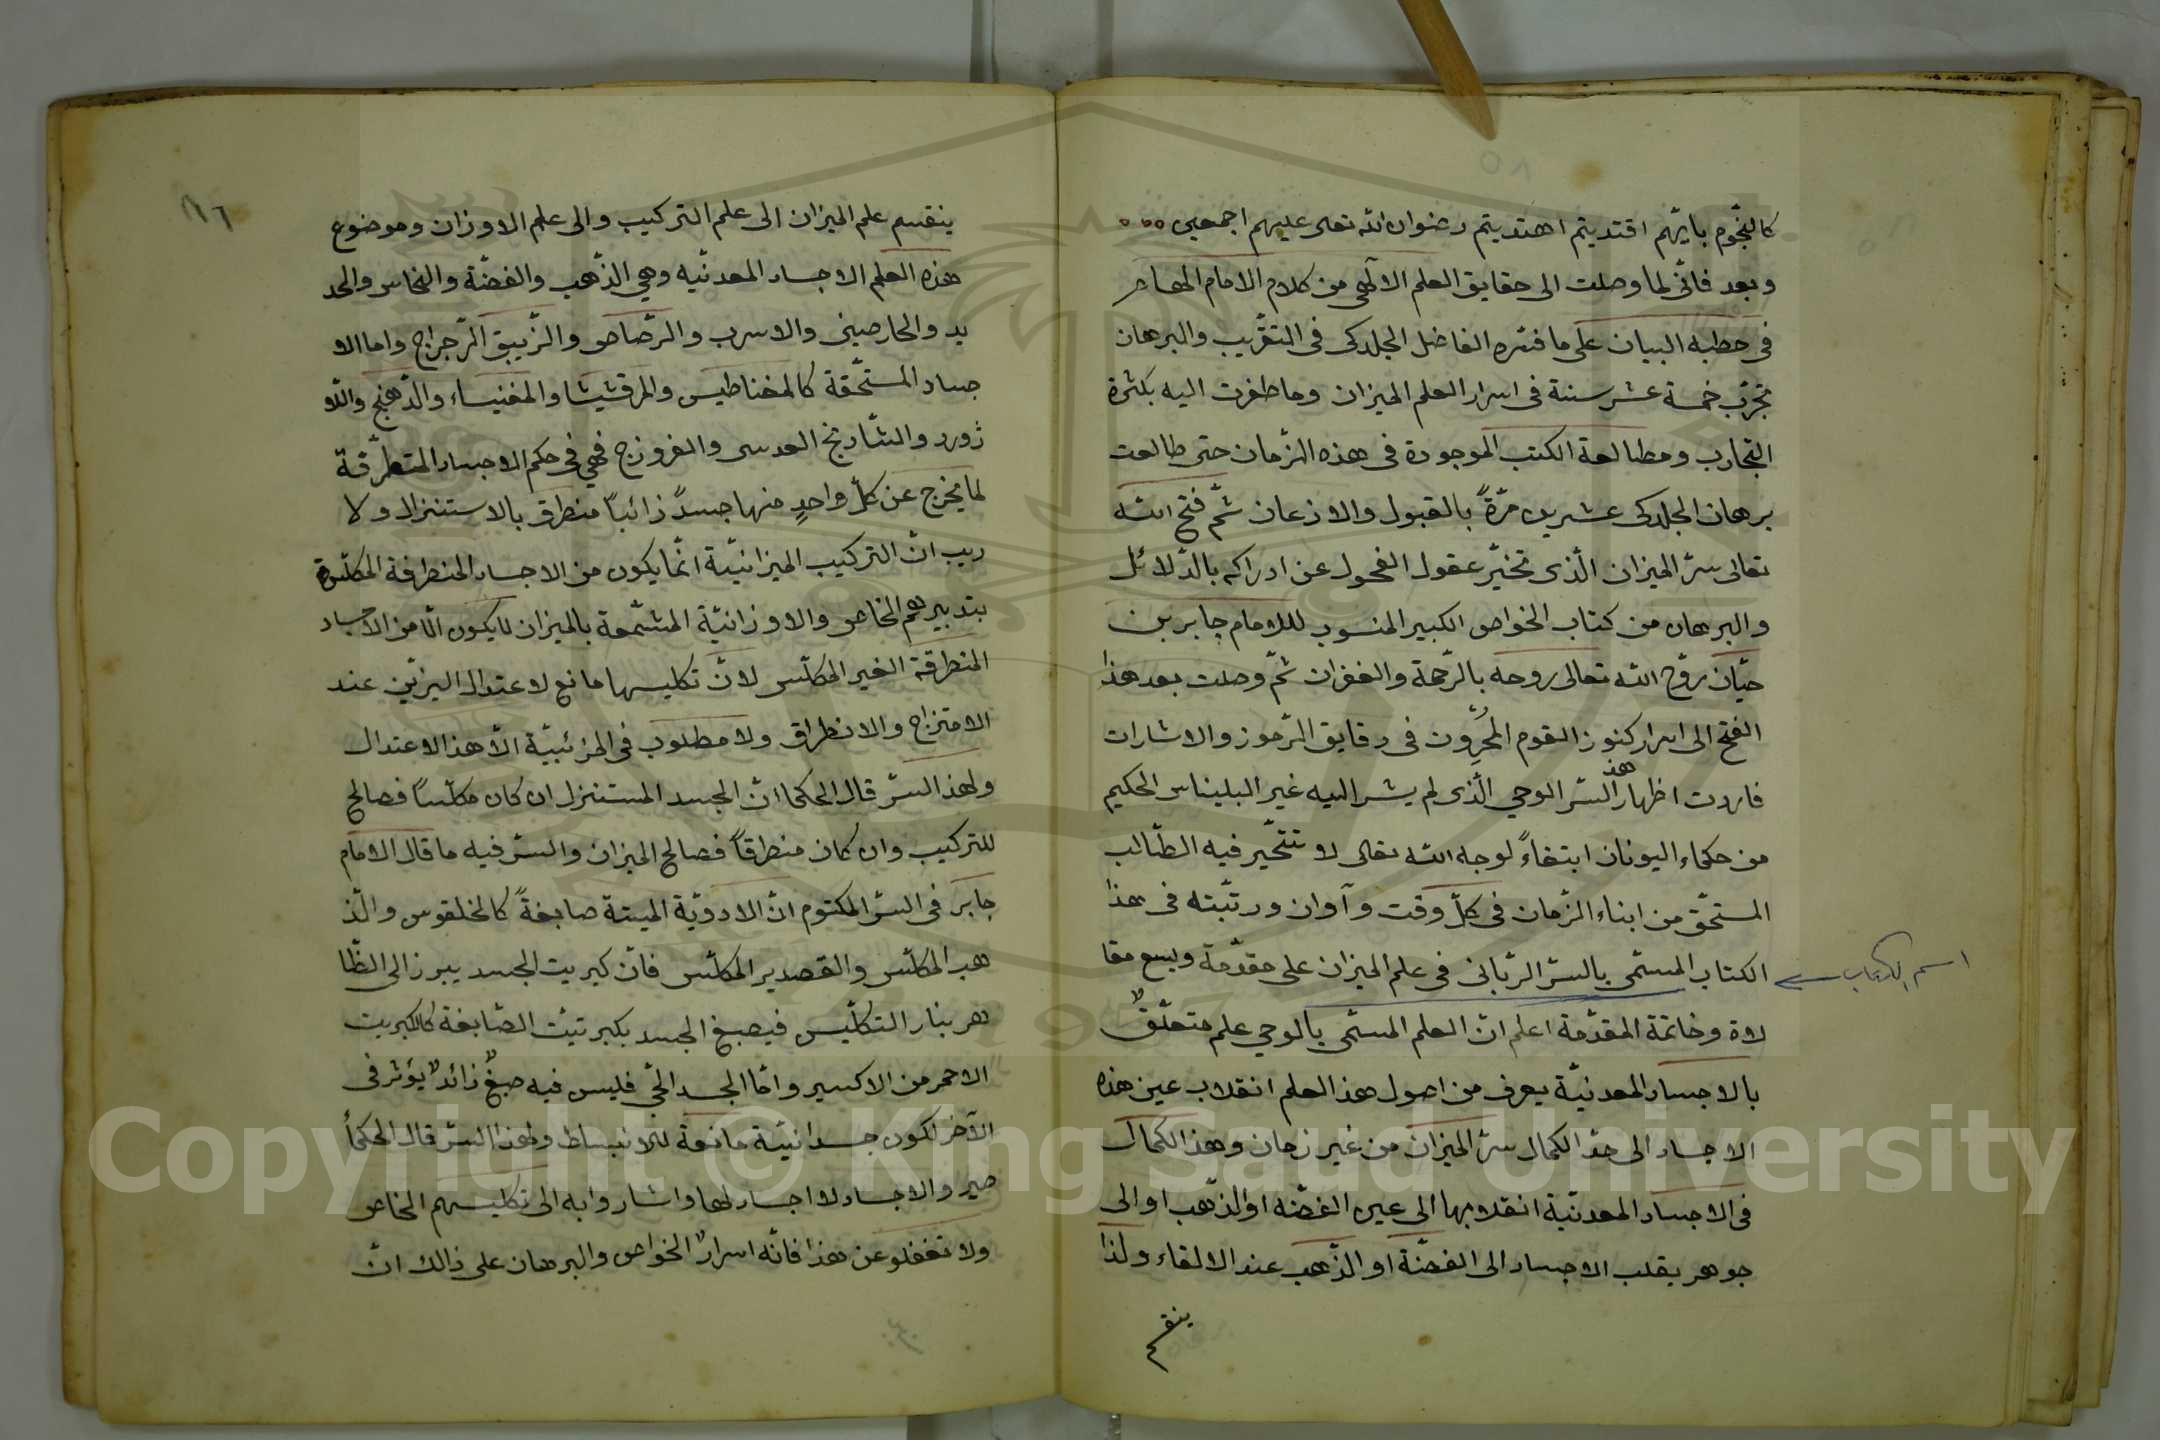 كالنجّوم بايّهم اقتديتم اهتديتم رضوان الله تعالى عليهم اجمعين
وبعد فانّى لما وصلت الى حقايق العلم الآلهى من كلام الامام
فى خطبة البيان على ما فسّره الفاضل الجلدكى فى التقريب والبرهان
خمسة عشر سنة فى اسرار العلم الميزان وما ظفرت اليه بكثرة
التجارب ومطالعة الكتب الموجودة فى هذه الزّمان حتى طالعت
برهان الجلدكى عشرين مرّةً بالقبول والاذعان ثمّ فتح الله
تعالى سرّ الميزان الّذى تحيّر عقول الفحول عن ادراكه بالدّلائل
والبرهان من كتاب الخواص الكبير المنسوب للامام جابر بن
حيّان روّح الله تعالى روحه بالرّحمة والغفران ثمّ وصلت بعد هذا
الفتح الى اسرار كنوز القوم فى دقايق الرّموز والاشارات
فاردت اظهار هذ السّر الوحى الّذى لم يشر اليه غير البليناس الحكيم
من حكماء اليونان ابتغاءً لوجه الله تعالى لا تتحيّر فيه الطّالب
المستحّق من ابناء الزّمان فى كلّ وقت وآوان ورتّبته فى هذا
الكتاب المسمّى بالسرّ الربّانى فى علم الميزان على مقدّمة وبسع مقا
اسم الكتاب
لاة وخاتمة المقدّمة اعلم انّ العلم المسمّى بالوحى علم متعلّقٌ
بالاجساد المعدنيّة يعرف من اصول هذ العلم انقلاب عين هذه
الاجساد الى حدّ الكمال سرّ الميزان من غير زمان وهذ الكمال
فى الاجساد المعدنيّة انقلابها الى عين الفضّه او الذّهب او الى
جوهر يقلب الاجساد الى الفضّة او الذّهب عند الالقاء ولذا
ينقسم
١٦
ينقسم علم الميزان الى علم التركيب والى علم الاوزان وموضوع
هذه العلم الاجساد المعدنيّه وهي الذّهب والفضّة والنحاس والحد
يد والخارصينى والاسرب والرّصاص والزّيبق الرّجراج واما الا
جساد المستحّقة كالمغناطيس والمرقشيشا والمغنيساء والدّهنج واللّا
ژورد والشّادنج العدسى والفروزج فهي فى حكم الاجساد المتطرّقة
لما يخرج عن كلّ واحدٍ منها جسدً ذائباً منطرق بالاستنزال ولا
ريب انّ التركيب الميزانيّة انّما يكون من الاجساد المنطرقة المكلّسة
بتدبيرهم الخاص والاوزانيّة المشمّعة بالميزان لا يكون الّا من الاجساد
المنطرقة الغير المكلّس لانّ تكليسها مانع لاعتدال النيرّين عند
الامتزاج والانطراق ولا مطلوب فى الجزئيّة الّا هذ الاعتدال
ولهذ السّر قال الحكما انّ الجسد المستنزل ان كان مكلّساً فصالح
للتركيب وان كان منطرقاً فصالح الميزان والسّر فيه ما قال الامام
جابر فى السّر المكتوم انّ الادويّة الميتة صابغةً كالخلقوس والّذ
هب المكلّس والقصدير المكلّس فانّ كبريت الجسد يبرز الى الظّا
هر بنار التكلّيس فيصبغ الجسد بكبرتيّت الصّابغة كالكبريت
الاحمر من الاكسير وامّا الجسد الحّى فليس فيه صبغٌ زائدٌ يؤثر فى
الآخر لكون جسدانيّة مانعة للانبساط ولهذ السّر قال الحكمأ
صيروالاجساد لا اجساد لها واشاروا به الى تكليسهم الخاص
ولا تغفلو عن هذا فانّه اسرارٌ الخواص والبرهان على ذالك انّ
Copyright © King Saud University